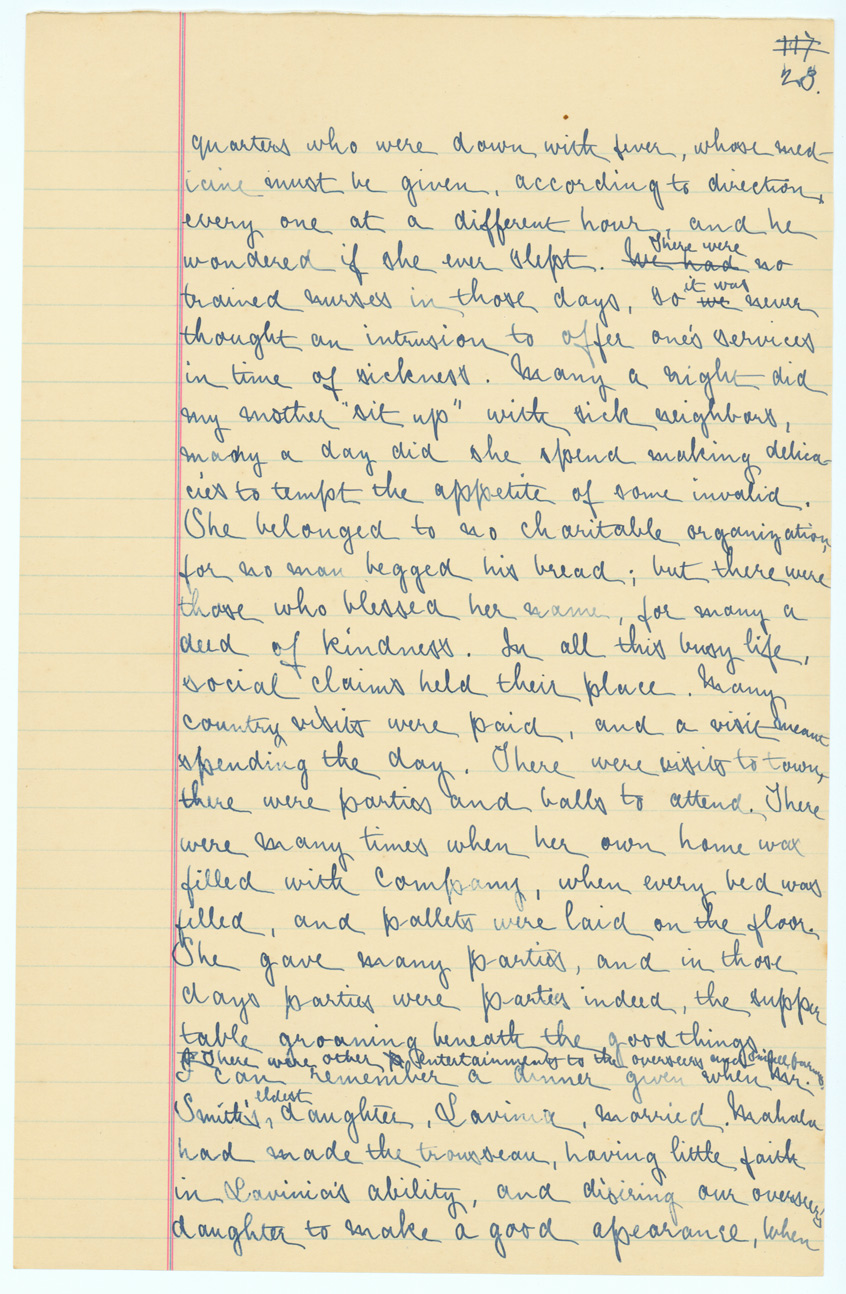 117
28.
quarters who were down with fever, whose med-
icine must be given, according to direction,
every one at a different hour, and he
wondered if she ever slept. We had There were no
trained nurses in those days, so we it was never
thought an intrusion to offer one's services
in time of sickness. Many a night did
my mother "sit up" with sick neighbors,
many a day did she spend making delica-
cies to tempt the appetite of some invalid.
She belonged to no charitable organization,
for no man begged his bread; but there were
those who blessed her name, for many a
deed of kindness. In all this busy life,
social claims held their place. Many
country visits were paid, and a visit meant
spending the day. There were visits to town,
there were parties and balls to attend. There
were many times when her own home was
filled with company, when every bed was
filled, and pallets were laid on the floor.
She gave many parties, and in those
days parties were parties indeed, the supper
table groaning beneath the good things.
There were other entertainments to the overseers and
I can remember a dinner given when Mr.
Smith's, eldest daughter, Lavinia, married. Mahala
had made the trousseau, having little faith
in Lavinia's ability, and disiring our overseer's
daughter to make a good apearance, when